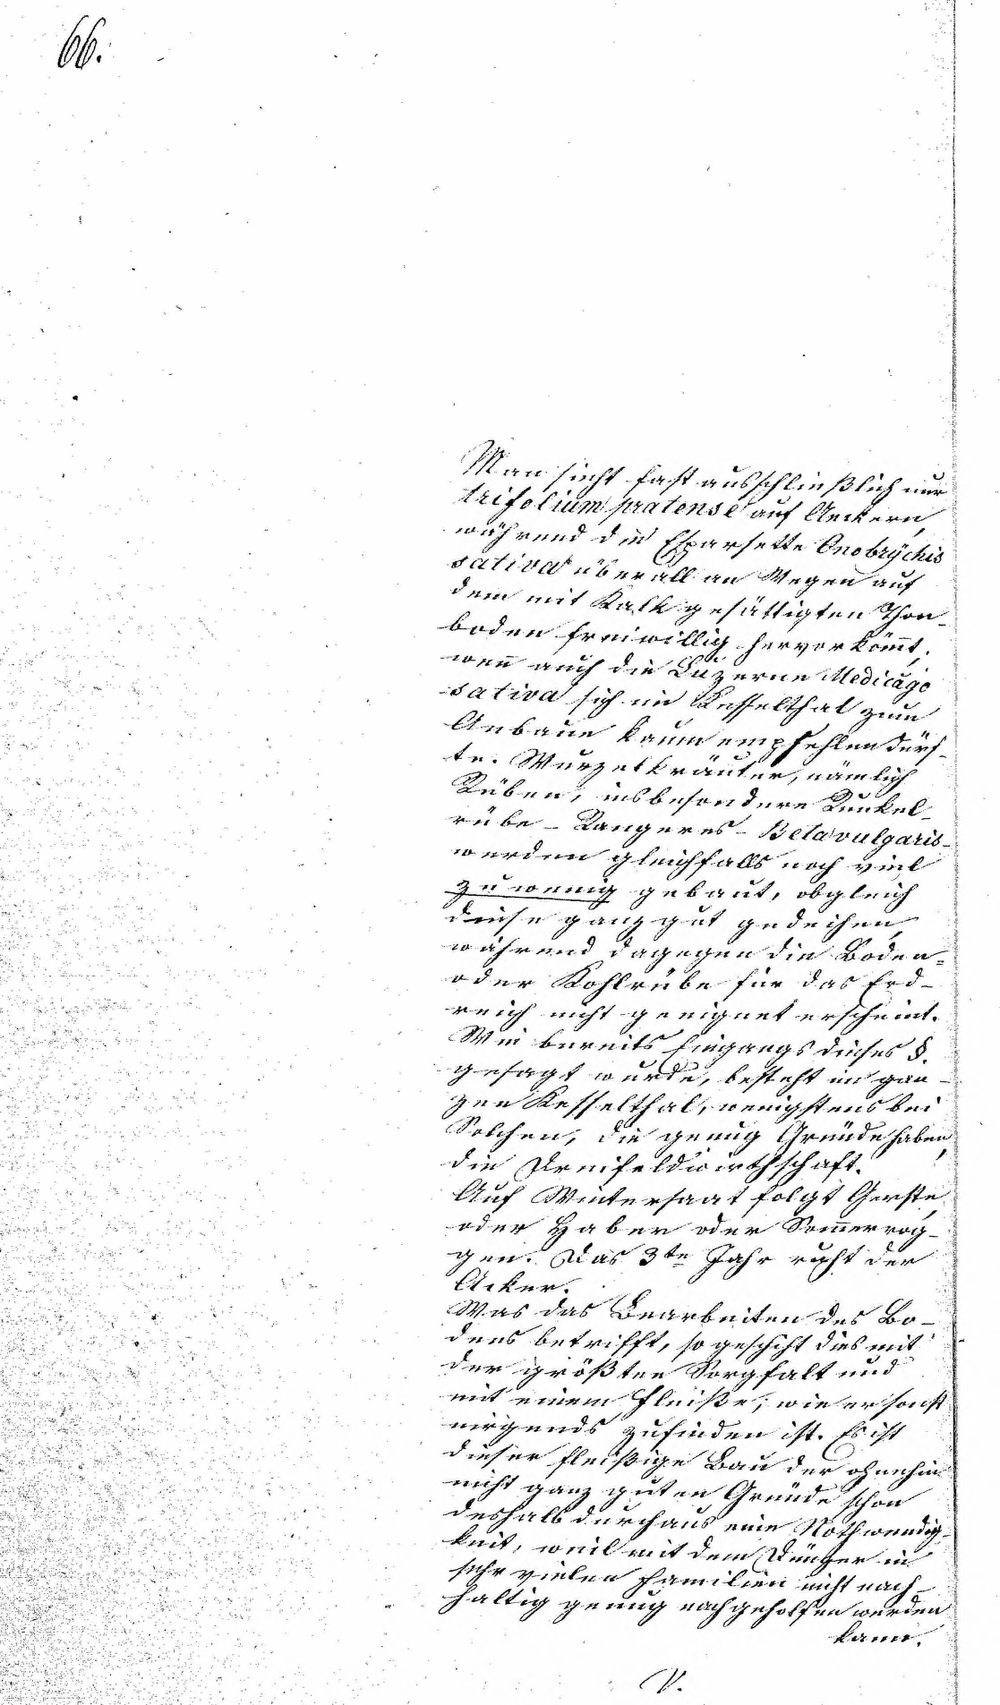 66.
Man sieht fast ausschließlich nur
trifolium pratense auf Aeckern,
während die Esparsette Onobrÿchis
sativa überall an Wegen auf
dem mit Kalk gesättigten Thon-
boden freiwillig hervorkom̄t,
wen̄ auch die Luzerne Medicago
sativa sich im Kesselthal zum
Anbaue kaum empfehlen dürf-
te. Wurzelkräuter, nämlich
Rüben, insbesondere Runkel-
rübe - Rangeres - Beta vulgaris -
werden gleichfalls noch viel
zu wenig gebaut, obgleich
diese ganz gut gedeihen,
während dagegen die Boden-
oder Kohlrübe für das Erd-
reich nicht geeignet erscheint.
Wie bereits Eingangs dieses §.
gesagt wurde, besteht im gan-
zen Kesselthal, wenigstens bei
Solchen, die genug Gründe haben,
die Dreifeldwirthschaft.
Auf Wintersaat folgt Gerste,
oder Haber oder Som̄errog-
gen. Das 3te Jahr ruht der
Acker.
Was das Bearbeiten des Bo-
dens betrifft, so geschiht dies mit
der größten Sorgfalt und
mit einem Fleiße, wie er sonst
nirgends zufinden ist. Es ist
dieser fleißige Bau der ohnehin
nicht ganz guten Gründe schon
deshalb durchaus eine Nothwendig-
keit, weil mit dem Dünger in
sehr vielen Familien nicht nach-
haltig genug nachgeholfen werden
kann.
V.